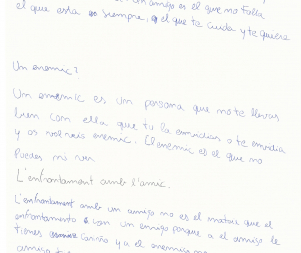 un amigo es el que no falla
el que esta siempre, el que te cuida y te quiera
Un enemic?
Un enemic es, un persona que no te llevas
bien con ella que tu la envidias o te envidia
y os volveis enemic. El enemic es el que no
Puedes ni ver.
L'enfrontament amb l'amic.
L'enfrontament amb un amigo no es el mateix que el
enfrontamento con un enmigo porque a el amigo le
tienes cariño y a el enemigo no